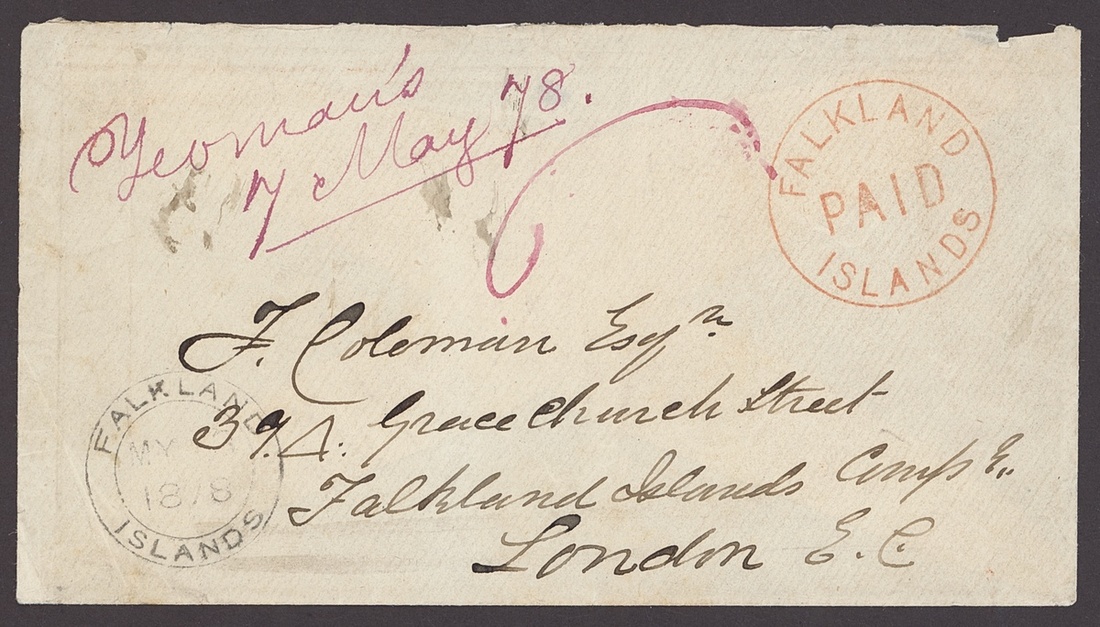 Yeoman's
7 May 78.
6
FALKLAND
PAID
ISLANDS
F. Coleman Esqr
39A. Gracechurch Street
Falkland Islands Comp
London E.C
FALKLAND
MY
1878
ISLANDS